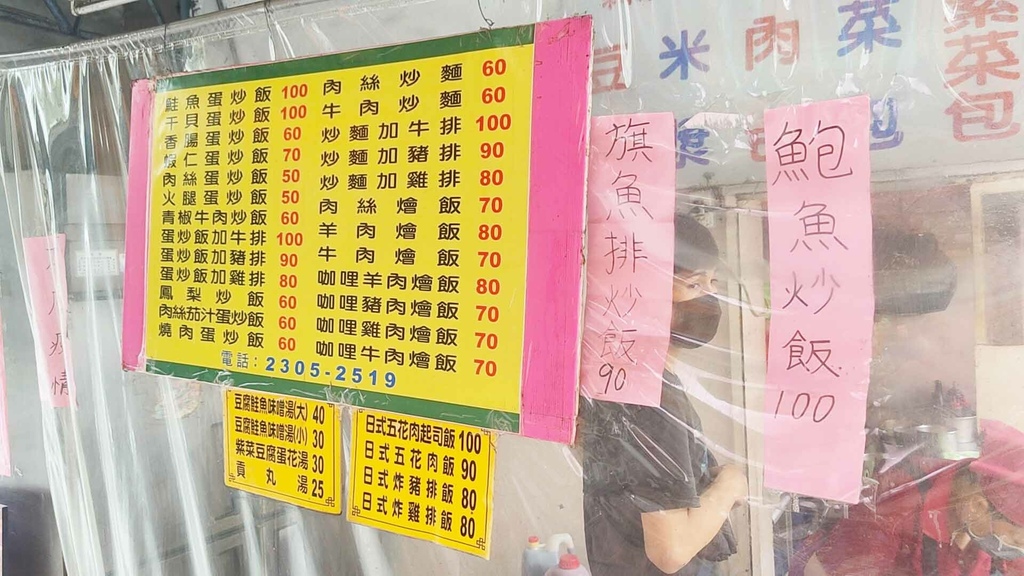 鮭魚蛋炒飯 100
干貝蛋炒飯 100
香腸蛋炒飯 60
蝦仁蛋炒飯 70
肉絲蛋炒飯 50
火腿蛋炒飯 50
青椒牛肉炒飯 60
蛋炒飯加牛排 100
蛋炒飯加豬排 90
蛋炒飯加雞排 80
鳳梨炒飯 60
肉絲茄汁蛋炒飯 60
燒肉蛋炒飯 60
肉絲炒麵 60
牛肉炒麵 60
炒麵加牛排 100
炒麵加豬排 90
炒麵加雞排 80
肉絲燴飯 70
羊肉燴飯 80
牛肉燴飯 70
咖哩羊肉燴飯 80
咖哩豬肉燴飯 70
咖哩雞肉燴飯 70
咖哩牛肉燴飯 70
電話:2305-2519
豆腐鮭魚味噌湯(大) 40
豆腐鮭魚味噌湯(小) 30
紫菜豆腐蛋花湯 30
貢丸湯 25
日式五花肉起司飯 100
日式五花肉飯 90
日式炸豬排飯 80
日式炸雞排飯 80
旗魚排炒飯 90
鮑魚炒飯 100
豆漿
米
肉包
菜包
素菜包